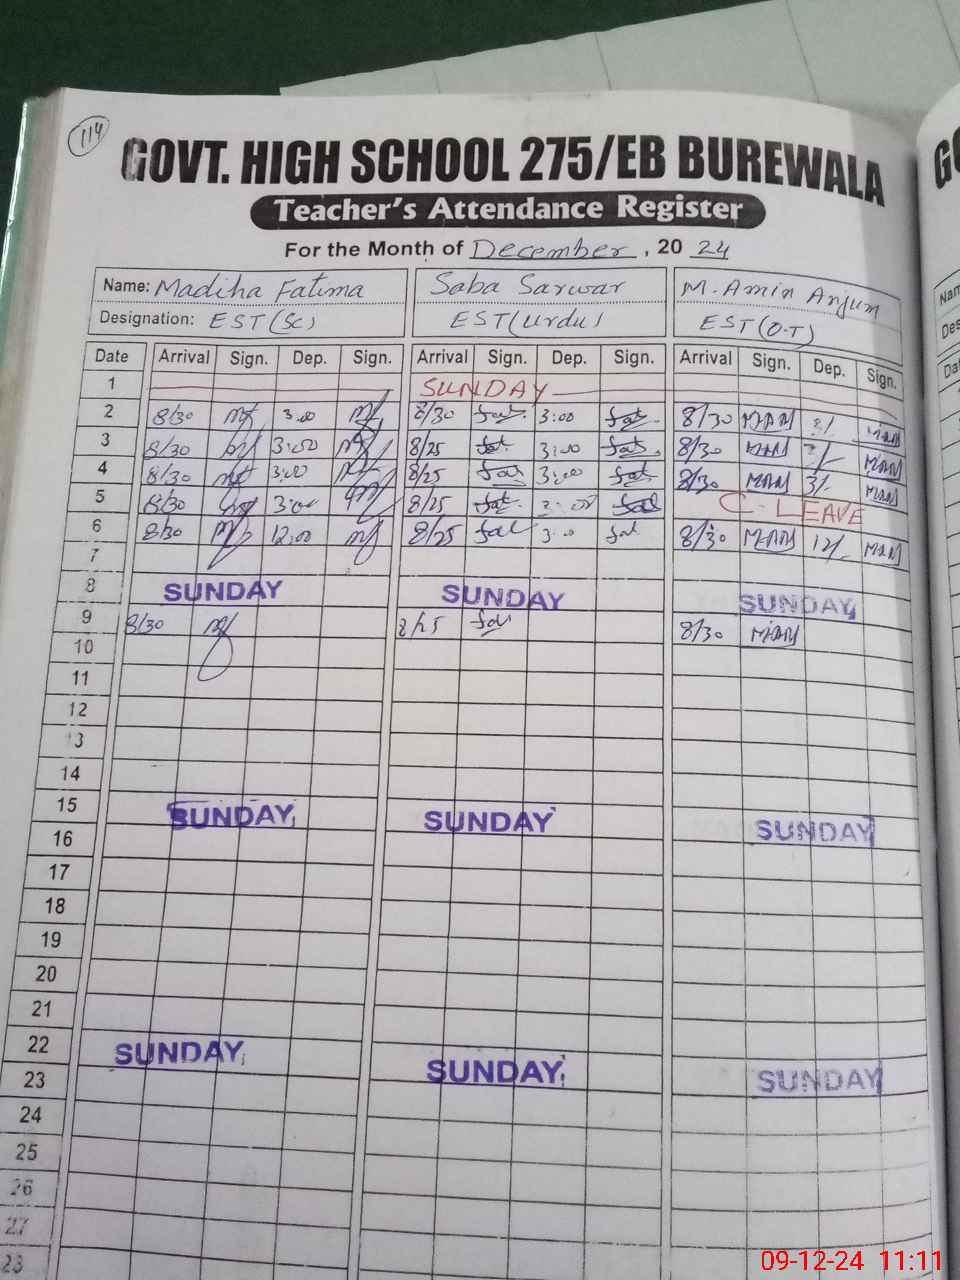 114
GOVT. HIGH SCHOOL 275/EB BUREWALA
Teacher's Attendance Register
For the Month of December, 20 24
Name: Madiha Fatima Saba Sarwar M. Amin Anjum
Designation: EST(Sc) EST(Urdu) EST(O.T)
Date Arrival Sign. Dep. Sign. Arrival Sign. Dep. Sign. Arrival Sign. Dep. Sign.
1 SUNDAY
2 8/30 3:00 8/30 3:00 8/30
3 8/30 3:00 8/25 3:00 8/30
4 8/30 3:00 8/25 3:00 8/30 3/
5 8/30 3:00 8/25 C-LEAVE
6 8/30 12:00 8/25 8/30 12/
7
8 SUNDAY SUNDAY SUNDAY
9 8/30 8/25 8/30
10
11
12
13
14
15 SUNDAY SUNDAY SUNDAY
16
17
18
19
20
21
22 SUNDAY SUNDAY SUNDAY
23
24
25
26
27
28
09-12-24 11:11